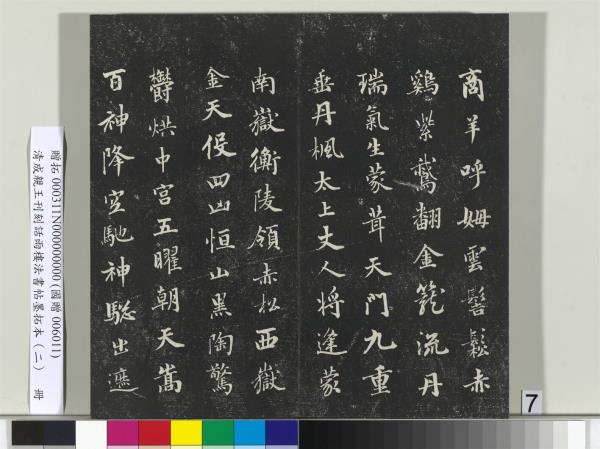 商羊呼姆雲髻鬆赤
鷄紫鸞翻金籠流丹
瑞氣生蒙茸天門九重
垂丹楓太上丈人將逢蒙
南嶽衡陵領赤松西嶽
金天促四凶恒山黑陶驚
鬱烘中宮五曜朝天嵩
百神降空馳神驄出遮
贈拓 000311N000000000 (國贈 006011)
清成親王刊刻詒晉樓法書帖墨拓本（二） 冊
7